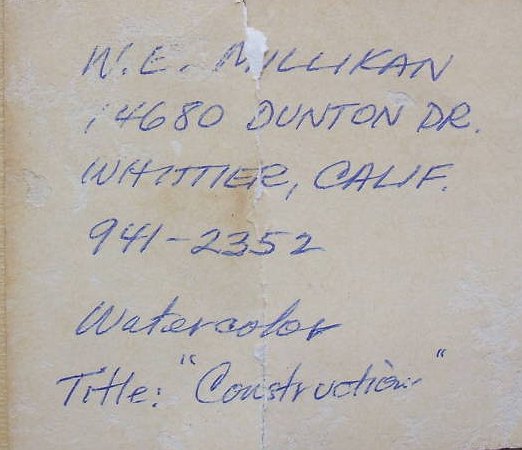 W. E. MILLIKAN
14680 DUNTON DR.
WHITTIER, CALIF.
941-2352
Watercolor
Title: "Construction"